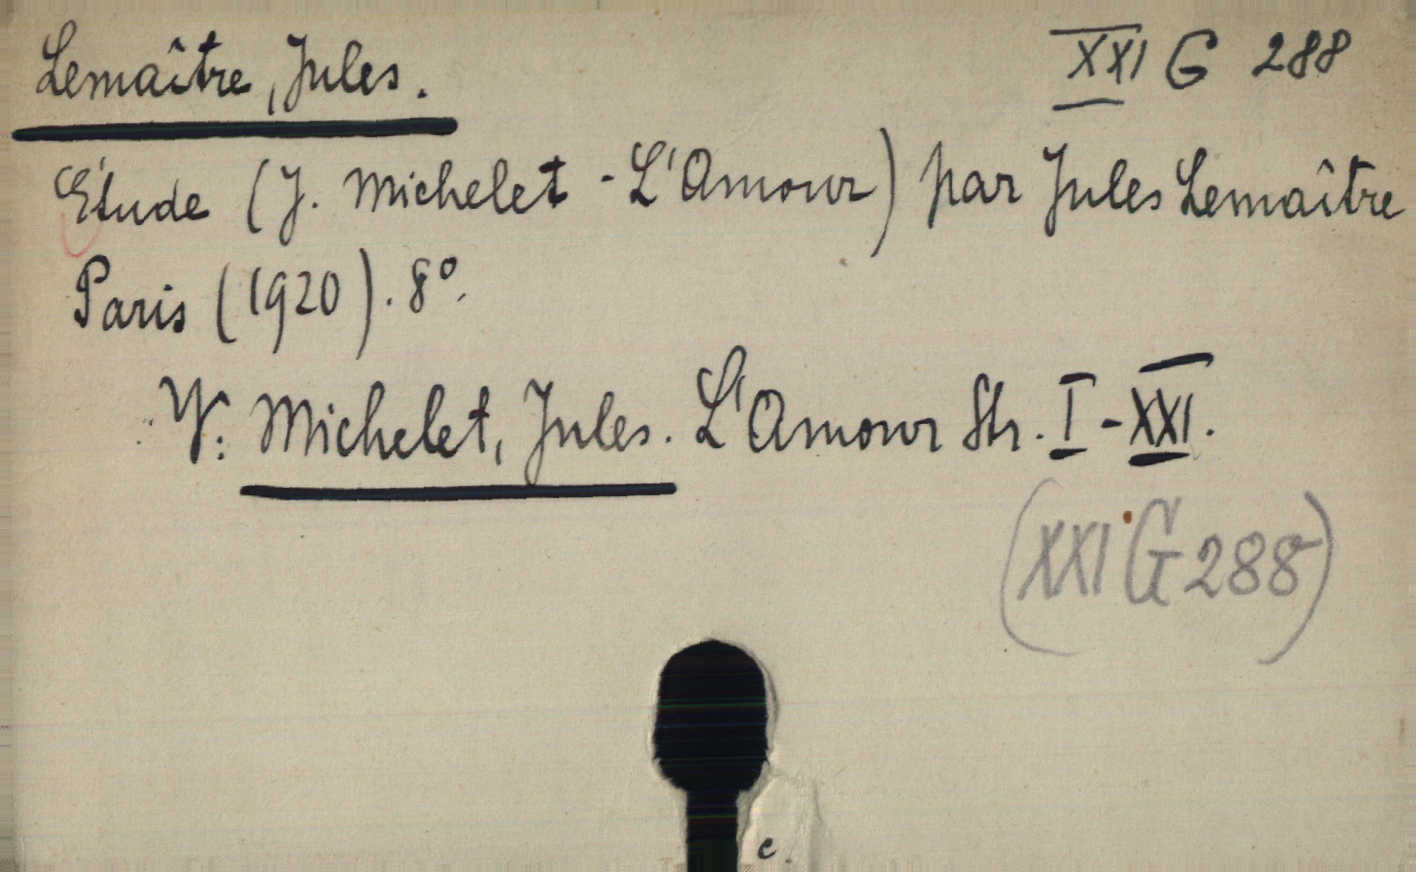 Lemaître, Jules.
XXI G 288
Étude (J. Michelet - L'Amour) par Jules Lemaître
Paris (1920). 8°.
V: Michelet, Jules. L'Amour Str. I - XXI.
(XXI G 288)
c.